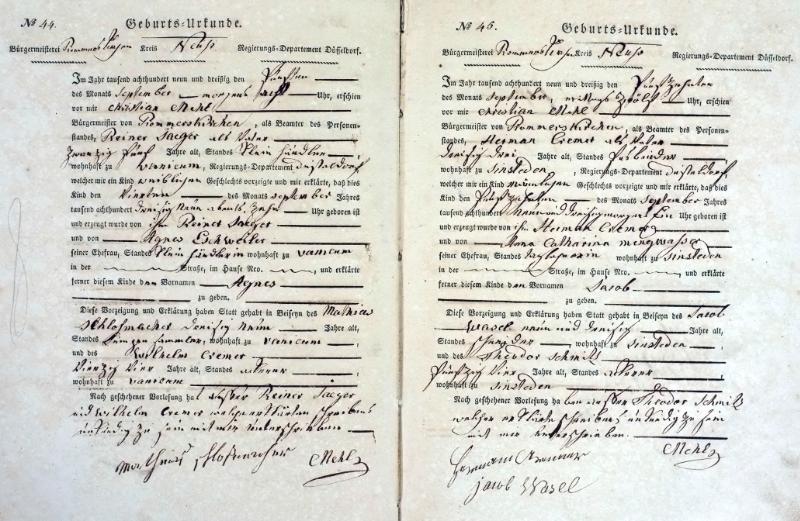 No 44.
Geburts-Urkunde.
Bürgermeisterei Rommerskirchen Kreis Neuss Regierungs-Departement Düsseldorf.
Im Jahr tausend achthundert neun und dreißig den fünften
des Monats September morgens acht Uhr, erschien
vor mir Christian Mehl
Bürgermeister von Rommerskirchen, als Beamter des Personen-
standes, Reiner Jaeger alt Vater
zwanzig fünf Jahre alt, Standes Kleinhändler
wohnhaft zu vanicum, Regierungs-Departement Düsseldorf
welcher mir ein Kind weiblichen Geschlechts vorzeigte und mir erklärte, daß dies
Kind den vierten des Monats September Jahres
tausend achthundert dreißig neun abends zehn Uhr geboren ist
und erzeugt wurde von ihm Reiner Jaeger
und von Agnes Eschweiler
seiner Ehefrau, Standes Kleinhändlerin wohnhaft zu vanicum
in der Straße, im Hause Nro. und erklärte
ferner diesem Kinde den Vornamen Agnes
zu geben.
Diese Vorzeigung und Erklärung haben Statt gehabt in Beiseyn des Mathias
Schlosmacher dreißig neun Jahre alt,
Standes wohnhaft zu vanicum
und des Wilhelm Cremer
vierzig vier Jahre alt, Standes Ackerer
wohnhaft zu vanicum
Nach geschehener Vorlesung hat Reiner Jaeger
und Wilhelm Cremer welche erklärten schreibens
unkundig zu sein mit mir unterschrieben
Mehl
No 46.
Geburts-Urkunde.
Bürgermeisterei Rommerskirchen Kreis Neuss Regierungs-Departement Düsseldorf.
Im Jahr tausend achthundert neun und dreißig den fünfzehnten
des Monats September, mittags zwölf Uhr, erschien
vor mir Christian Mehl
Bürgermeister von Rommerskirchen, als Beamter des Personen-
standes, Herman Cremer als Vater
dreißig drei Jahre alt, Standes
wohnhaft zu Sinsteden, Regierungs-Departement Düsseldorf
welcher mir ein Kind männlichen Geschlechts vorzeigte und mir erklärte, daß dies
Kind den fünfzehnten des Monats September Jahres
tausend achthundert neun und dreißig morgens ein Uhr geboren ist
und erzeugt wurde von ihm Herman Cremer
und von Anna Catharina mingwasser
seiner Ehefrau, Standes Taglöhnerin wohnhaft zu Sinsteden
in der Straße, im Hause Nro. und erklärte
ferner diesem Kinde den Vornamen Jacob
zu geben.
Diese Vorzeigung und Erklärung haben Statt gehabt in Beiseyn des Jacob
Wasel neun und dreißig Jahre alt,
Standes Schneider, wohnhaft zu Sinsteden
und des Theodor Schmitz
fünfzig vier Jahre alt, Standes Ackerer
wohnhaft zu Sinsteden
Nach geschehener Vorlesung haben außer Theodor Schmitz
welcher erklärte schreibens unkundig zu sein
mit mir unterschrieben.
Mehl
Jacob Wasel